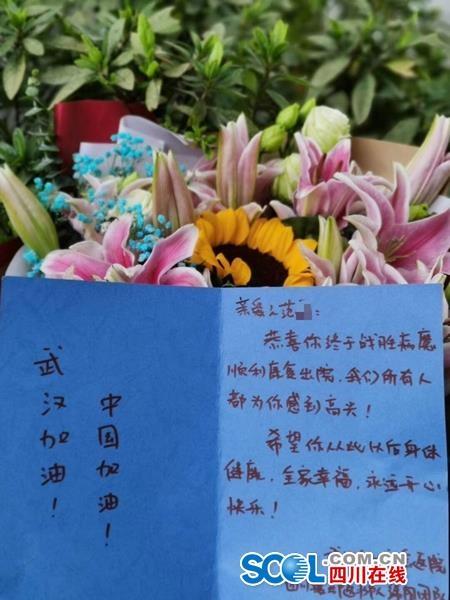 武汉加油！
中国加油！
亲爱的范：
恭喜你终于战胜病魔
顺利康复出院，我们所有人
都为你感到高兴！
希望你从此以后身体
健康，全家幸福，永远开心
快乐！
医院
团队
SCOL.COM.CN
四川在线